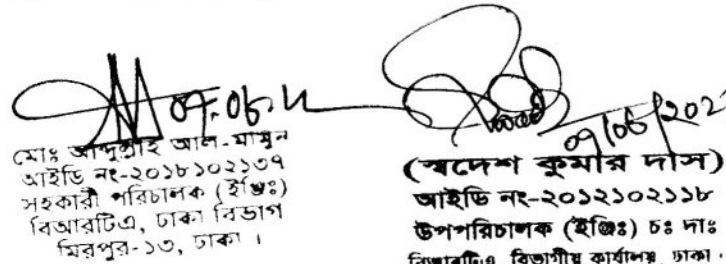 ০৭.০৬.২২
মোঃ আব্দুল্লাহ আল-মামুন
আইডি নং-২০১৮১০২১৩৭
সহকারী পরিচালক (ইঞ্জিঃ)
বিআরটিএ, ঢাকা বিভাগ
মিরপুর-১৩, ঢাকা ।
০৭/০৬/202
(স্বদেশ কুমার দাস)
আইডি নং-২০১২১০২১১৮
উপপরিচালক (ইঞ্জিঃ) চঃ দাঃ
বিআরটিএ, বিভাগীয় কার্যালয়, ঢাকা ।